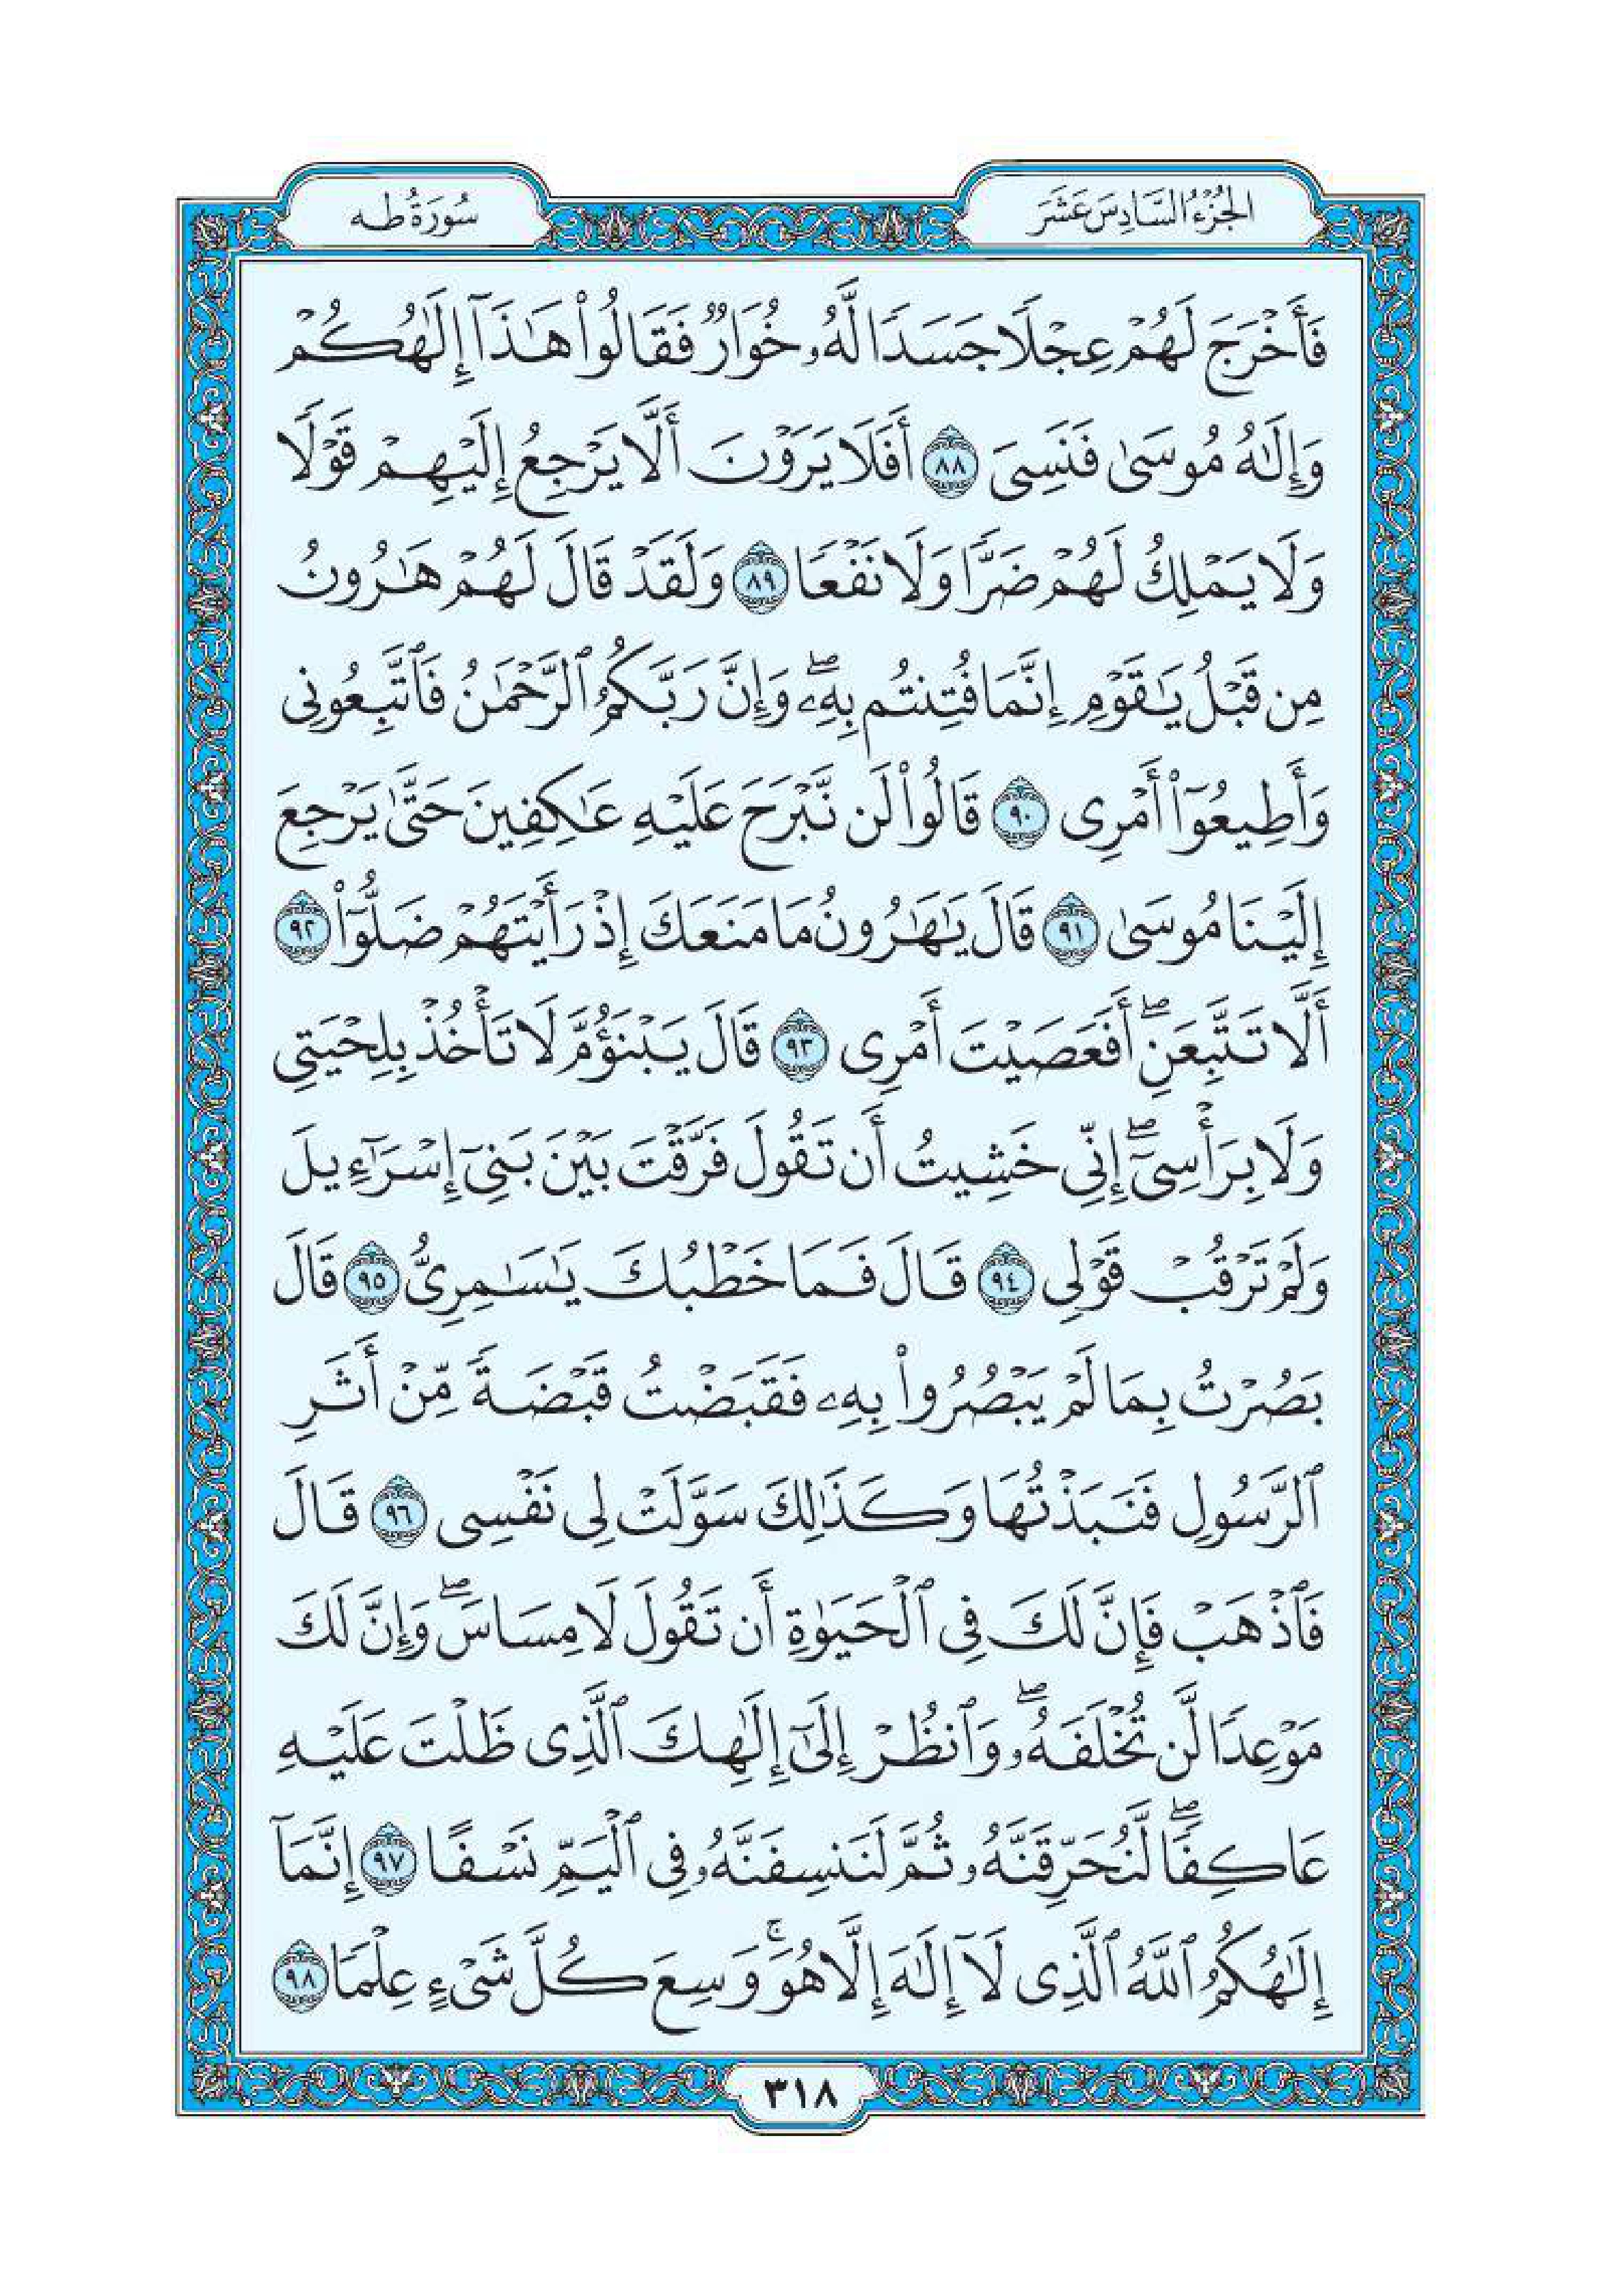 الجُزْءُ السَّادِسَ عَشَرَ
سُورَةُ طه
فَأَخْرَجَ لَهُمْ عِجْلًا جَسَدًا لَّهُۥ خُوَارٌ فَقَالُوا۟ هَـٰذَآ إِلَـٰهُكُمْ
وَإِلَـٰهُ مُوسَىٰ فَنَسِىَ ٨٨ أَفَلَا يَرَوْنَ أَلَّا يَرْجِعُ إِلَيْهِمْ قَوْلًا
وَلَا يَمْلِكُ لَهُمْ ضَرًّا وَلَا نَفْعًا ٨٩ وَلَقَدْ قَالَ لَهُمْ هَـٰرُونُ
مِن قَبْلُ يَـٰقَوْمِ إِنَّمَا فُتِنتُم بِهِۦ ۖ وَإِنَّ رَبَّكُمُ ٱلرَّحْمَـٰنُ فَٱتَّبِعُونِى
وَأَطِيعُوٓا۟ أَمْرِى ٩٠ قَالُوا۟ لَن نَّبْرَحَ عَلَيْهِ عَـٰكِفِينَ حَتَّىٰ يَرْجِعَ
إِلَيْنَا مُوسَىٰ ٩١ قَالَ يَـٰهَـٰرُونُ مَا مَنَعَكَ إِذْ رَأَيْتَهُمْ ضَلُّوٓا۟ ٩٢
أَلَّا تَتَّبِعَنِ ۖ أَفَعَصَيْتَ أَمْرِى ٩٣ قَالَ يَبْنَؤُمَّ لَا تَأْخُذْ بِلِحْيَتِى
وَلَا بِرَأْسِىٓ ۖ إِنِّى خَشِيتُ أَن تَقُولَ فَرَّقْتَ بَيْنَ بَنِىٓ إِسْرَٰٓءِيلَ
وَلَمْ تَرْقُبْ قَوْلِى ٩٤ قَالَ فَمَا خَطْبُكَ يَـٰسَـٰمِرِىُّ ٩٥ قَالَ
بَصُرْتُ بِمَا لَمْ يَبْصُرُوا۟ بِهِۦ فَقَبَضْتُ قَبْضَةً مِّنْ أَثَرِ
ٱلرَّسُولِ فَنَبَذْتُهَا وَكَذَٰلِكَ سَوَّلَتْ لِى نَفْسِى ٩٦ قَالَ
فَٱذْهَبْ فَإِنَّ لَكَ فِى ٱلْحَيَوٰةِ أَن تَقُولَ لَا مِسَاسَ ۖ وَإِنَّ لَكَ
مَوْعِدًا لَّن تُخْلَفَهُۥ ۖ وَٱنظُرْ إِلَىٰٓ إِلَـٰهِكَ ٱلَّذِى ظَلْتَ عَلَيْهِ
عَاكِفًا ۖ لَّنُحَرِّقَنَّهُۥ ثُمَّ لَنَنسِفَنَّهُۥ فِى ٱلْيَمِّ نَسْفًا ٩٧ إِنَّمَآ
إِلَـٰهُكُمُ ٱللَّهُ ٱلَّذِى لَآ إِلَـٰهَ إِلَّا هُوَ ۚ وَسِعَ كُلَّ شَىْءٍ عِلْمًا ٩٨
٣١٨